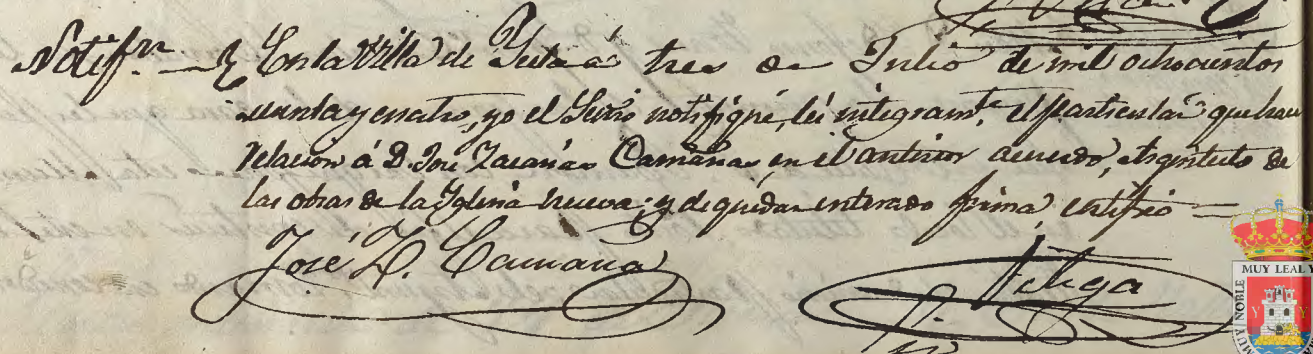 Notifn. En la Villa de Yecla á tres de Julio de mil ochocientos
sesenta y cuatro, yo el Sectrio notifiqué, leí integramte. el particular que hace
relacion á D. José Zacarías Camaña, en el anterior acuerdo, Arquitecto de
las obras de la Iglesia nueva; y de quedar enterado firma, certifico =
José Z. Camaña
Ortega
MUY NOBLE
MUY LEAL Y